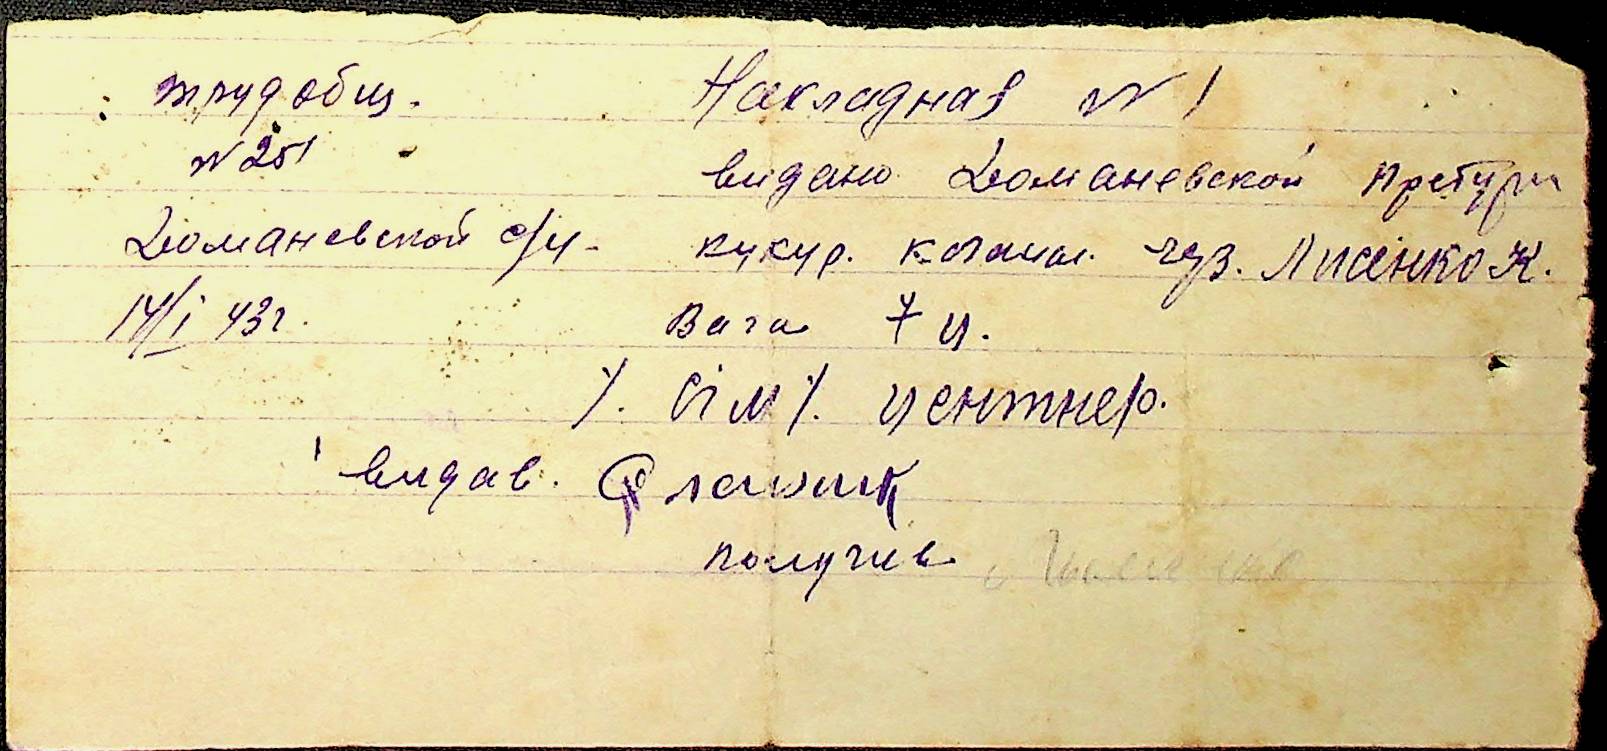 трудобщ.
№ 251
Доманевской с/у-
14/I 43г.
Накладная № 1
видано Доманевской Претури
кукур. качан. чрз. Лисенко К.
Вага 7 ц.
/. сім /. центнер.
видав.
получив